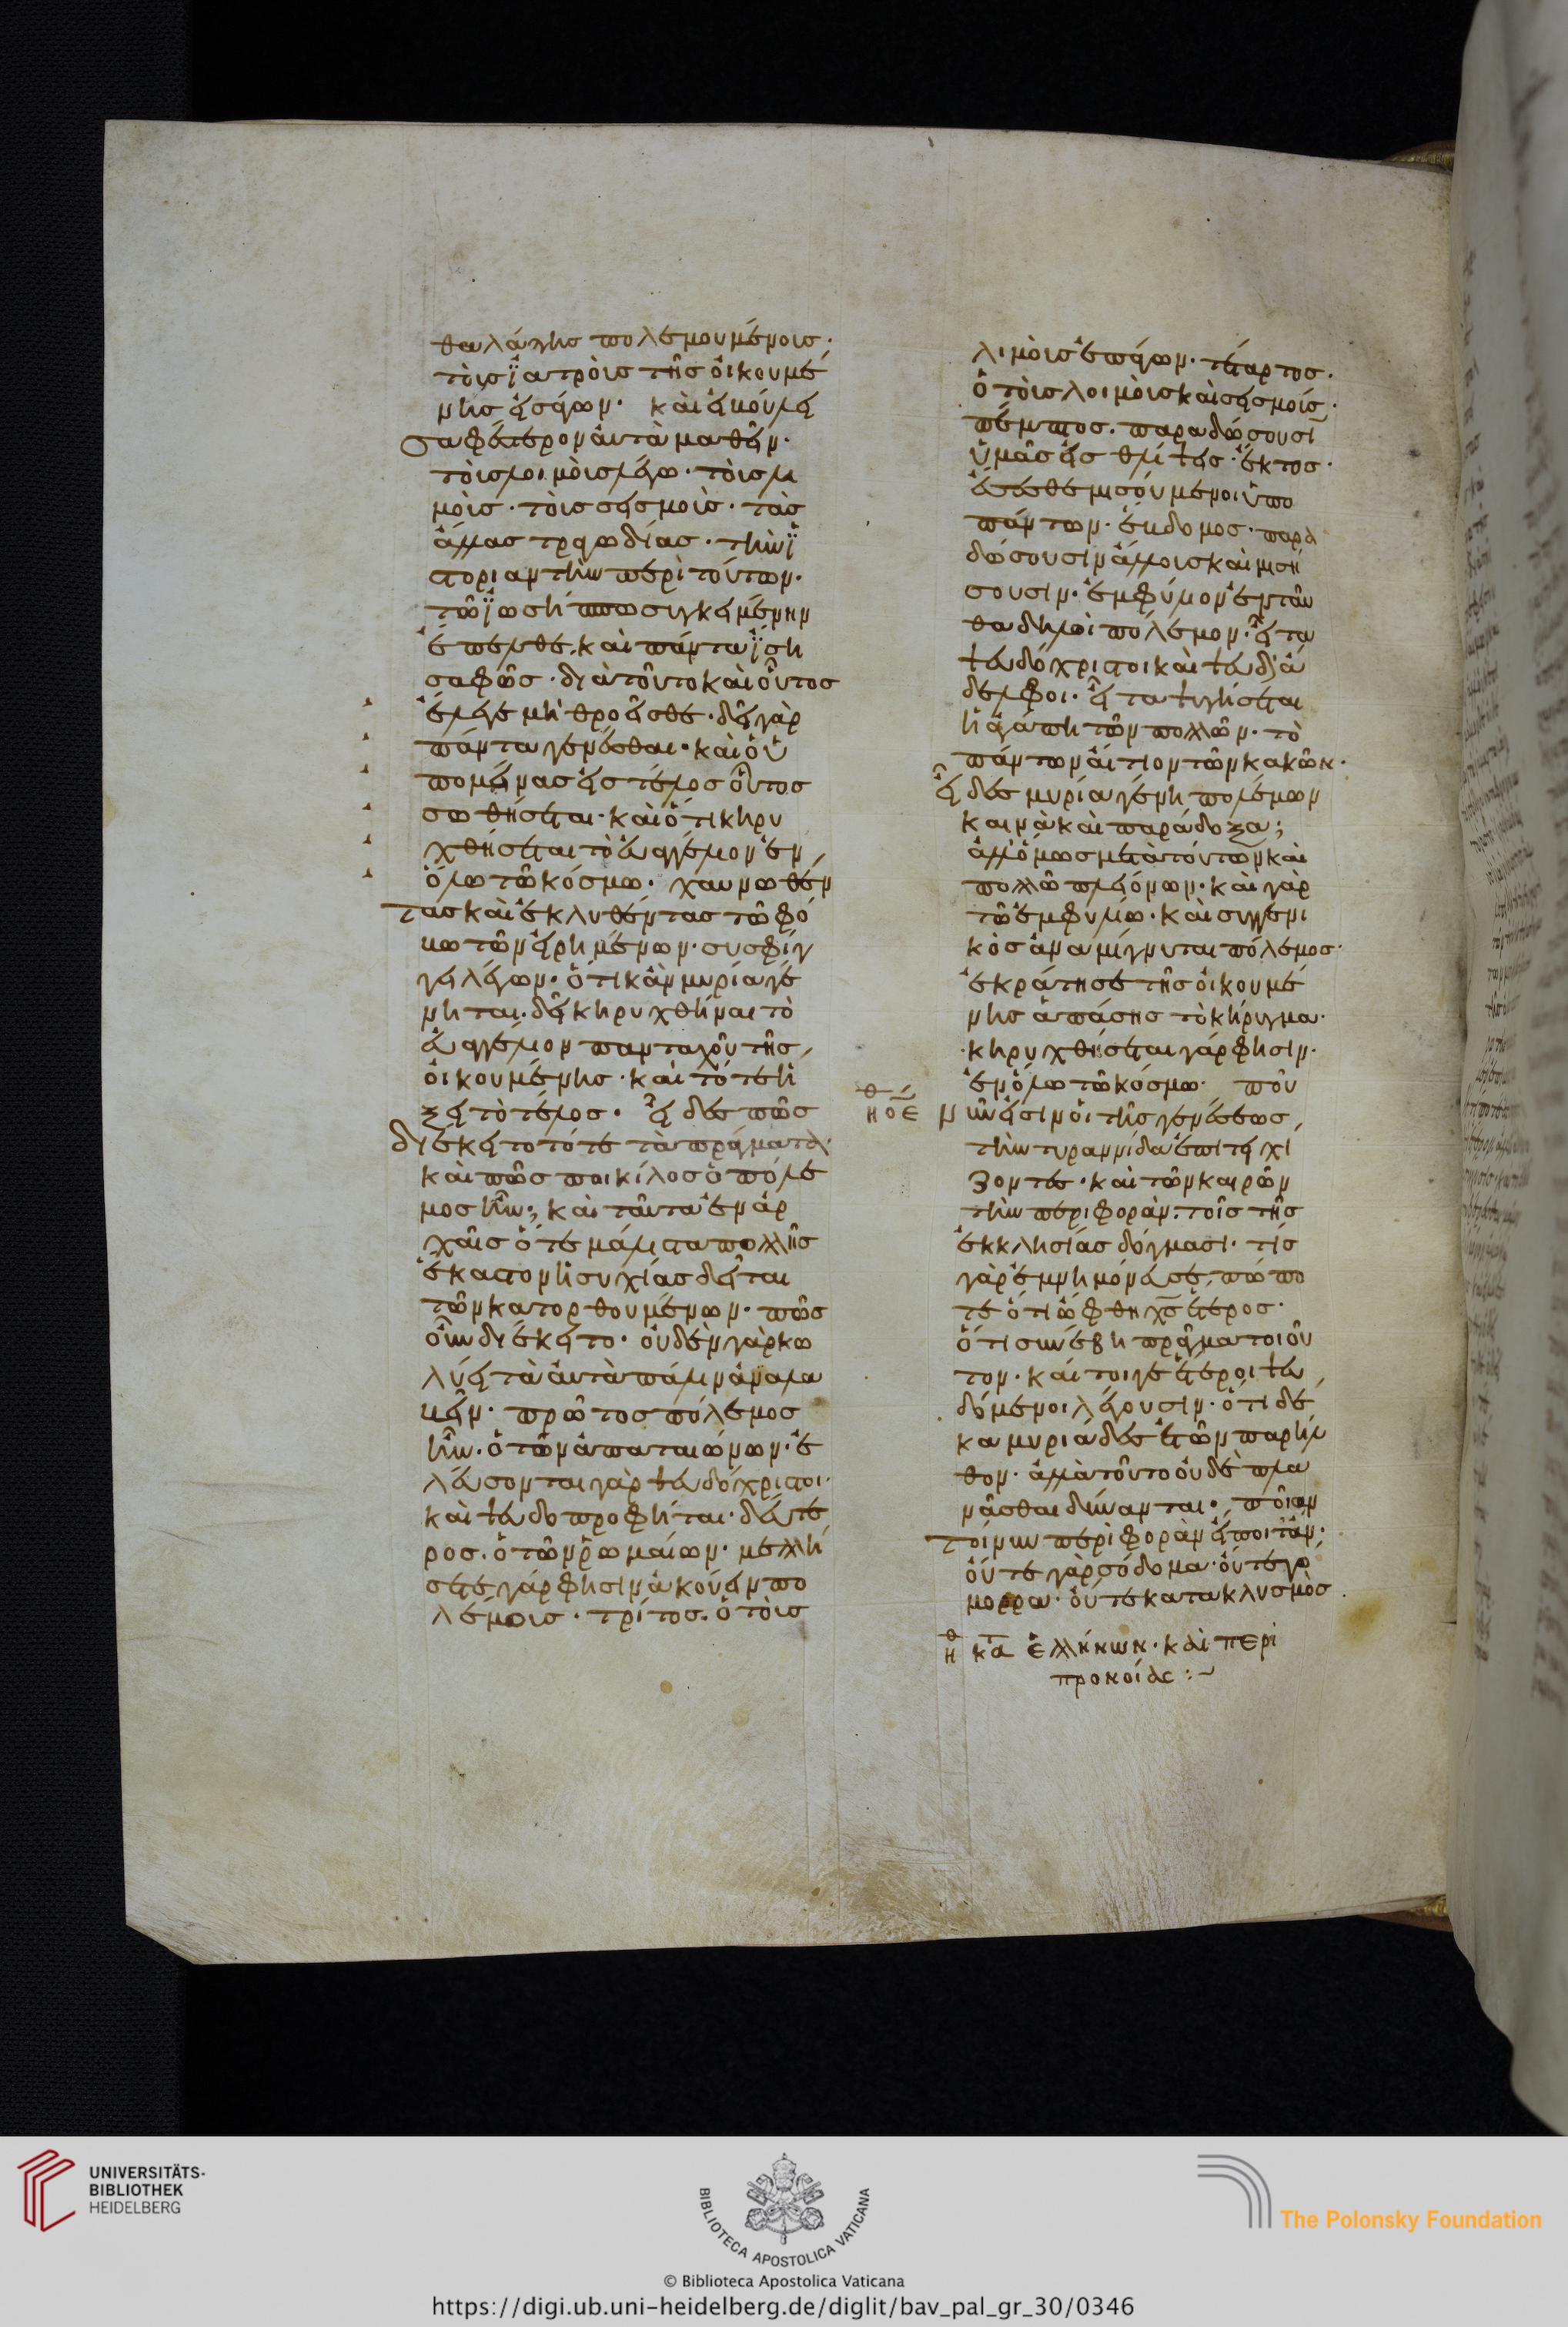 θαλάττης πολεμουμένοις·
τοῖς ϊατροῖς τῆς οἰκουμέ
νης εἰσάγων· καὶ εἰ βούλει
σαφέστερον αὐτὰ μαθεῖν·
τοῖς λοιμοῖς λέγω· τοῖς λι
μοῖς· τοῖς σεισμοῖς· τὰς
ἄλλας τραγωδίας· τὴν ϊ
στορίαν τὴν περὶ τούτων·
τῶ ϊωσήππω συγκειμένην
ἔπελθε. καὶ πάντα εἴση
σαφῶς· διὰ τοῦτο καὶ οὗτος
ἔλεγε μὴ θροεῖσθε· δεῖ γὰρ
πάντα γενέσθαι· καὶ ὁ ὑ
πομείνας εἰς τέλος οὗτος
σωθήσεται· καὶ ὅτι κηρυ
χθήσεται τὸ εὐαγγέλιον ἐν
ὅλω τῶ κόσμω· χαυνωθέν
τας καὶ ἐκλυθέντας τῶ φό
βω τῶν εἰρημένων· συσφίγ
γει λέγων· ὅτι κἂν μυρία γέ
νηται. δεῖ κηρυχθῆναι τὸ
εὐαγγέλιον πανταχοῦ τῆς
οἰκουμένης· καὶ τότε ἥ
ξει τὸ τέλος· εἶδες πῶς
διέκειτο τότε τὰ πράγματα·
καὶ πῶς ποικίλος ὁ πόλε
μος ἦν; καὶ ταῦτα ἐν ἀρ
χαῖς ὅτε μάλιστα πολλῆς
ἕκαστον ἡσυχίας δεῖται
τῶν κατορθουμένων· πῶς
οὖν διέκειτο· οὐδὲν γὰρ κω
λύει τὰ αὐτὰ πάλιν ἀναλα
βεῖν· πρῶτος πόλεμος
ἦν· ὁ τῶν ἀπαταιώνων· ἐ
λεύσονται γὰρ ψευδόχριστοι·
καὶ ψευδοπροφῆται· δεύτε
ρος· ὁ τῶν ῥωμαίων· μελλή
σετε γάρ φησιν ἀκούειν πο
λέμοις· τρίτος. ὁ τοῖς
λιμοῖς ἐπάγων· τέταρτος·
ὁ τοῖς λοιμοῖς καὶ σεισμοῖς·
πέμπτος. παραδώσουσι
ὑμᾶς εἰς θλίψεις· ἕκτος·
ἔσεσθε μισούμενοι ὑπὸ
πάντων· ἕβδομος· παρα
δώσουσιν ἀλλήλους καὶ μισή
σουσιν· ἐμφύλιον ἐνταῦ
θα δηλοῖ πόλεμον· εἶτα
ψευδόχριστοι καὶ ψευδάδελ
δελφοι. εἶτα ψυγήσεται
ἡ ἀγάπη τῶν πολλῶν· τὸ
πάντων αἴτιον τῶν κακῶν·
εἶδες μυρία γένη πολέμων
καινὰ καὶ παράδοξα;
ἀλλ' ὅμως μετὰ τούτων καὶ
πολλῶ πλειόνων· καὶ γὰρ
τῶ ἐμφυλίω· καὶ συγγενι
κὸς ἀναμίγνυται πόλεμος·
ἐκράτησε τῆς οἰκουμέ
νης ἁπάσης τὸ κήρυγμα·
κηρυχθήσεται γάρ φησιν·
ἐν ὅλω τῶ κόσμω· ποῦ
ηθ οε νῦν εἰσιν οἱ τῆς γενέσεως
τὴν τυραννίδα ἐπιτειχί
ζοντες· καὶ τῶν καιρῶν
τὴν περιφοράν· τοῖς τῆς
ἐκκλησίας δόγμασι· τίς
γὰρ ἐμνημόνευσέ πώπο
τε ὅτι ὤφθη χς ἕτερος·
ὅτι συνέβη πρᾶγμα τοιοῦ
τον· καίτοιγε ἕτεροι ψευ
δόμενοι λέγουσιν· ὅτι δέ
κα μυριάδες ἐτῶν παρῆλ
θον· ἀλλὰ τοῦτο οὐδὲ πλα
νᾶσθαι δύνανται· ποίαν
τοίνυν περιφορὰν εἴποιτ' ἄν·
οὔτε γὰρ σόδομα· οὔτε γό
μορρα· οὔτε κατακλυσμὸς
ηθ κα ἑλλήνων· καὶ περὶ
προνοίας :~
UNIVERSITÄTS-
BIBLIOTHEK
HEIDELBERG
BIBLIOTECA APOSTOLICA VATICANA
The Polonsky Foundation
© Biblioteca Apostolica Vaticana
https://digi.ub.uni-heidelberg.de/diglit/bav_pal_gr_30/0346